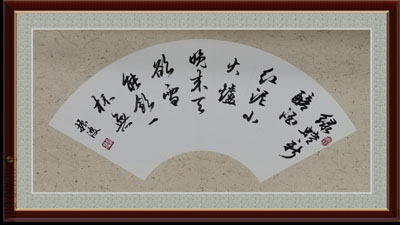 绿蟻新
醅酒
红泥小
火爐
晚来天
欲雪
能飲一
杯無